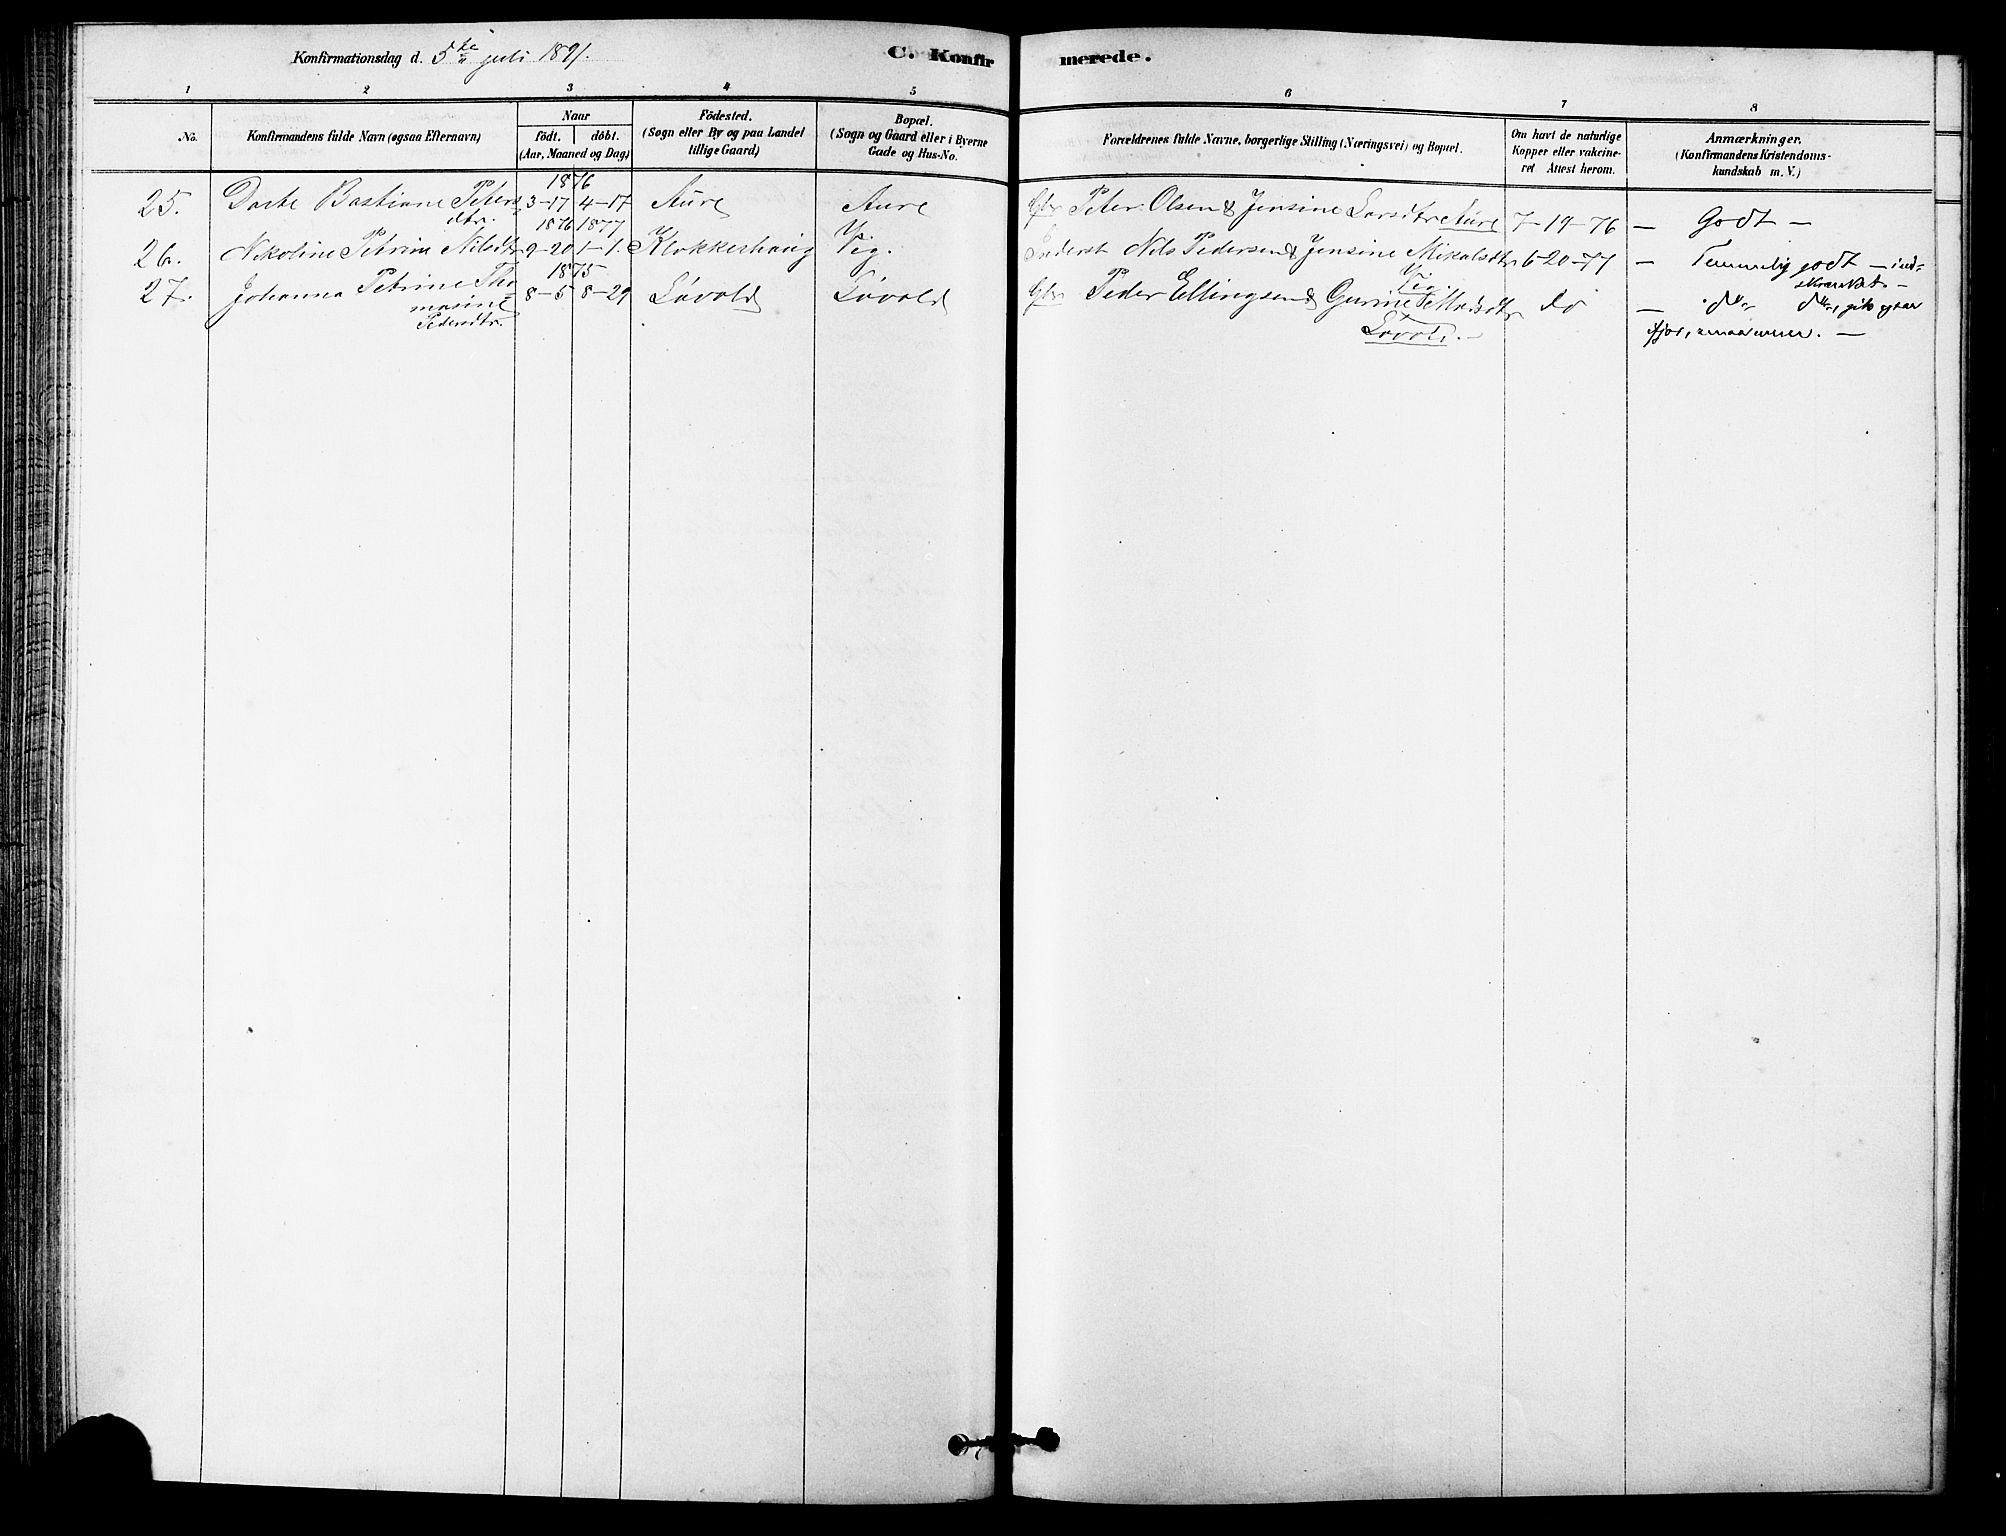 Konfirmationsdag d. 5te juli 1891.
C. Konfirmerede.
1 2 3 4 5 6 7 8
No.
Konfirmandens fulde Navn (ogsaa Efternavn)
Naar
födt. döbt.
(Aar, Maaned og Dag)
Födested.
(Sogn eller By og paa Landet
tillige Gaard)
Bopæl.
(Sogn og Gaard eller i Byerne
Gade og Hus-No.
Forældrenes fulde Navne, borgerlige Stilling (Næringsvei) og Bopæl.
Om havt de naturlige
Kopper eller vakcine-
ret Attest herom.
Anmærkninger.
(Konfirmandens Kristendoms-
kundskab m. V.)
1876
25. Dorte Bastiane Peters 3-17 4-17 Aure Aure Gbr Peter Olsen & Jensine Larsdtr Aure 7-19-76 — Godt —
dtr. 1876 1877
26. Nikoline Petrine Nilsdtr 9-20 1-1. Klokkerhaug Vig. Inderst Nils Pedersen & Jensine Mikalsdtr 6-20-77 — Temmelig godt — ind-
1875 Vig. skrænket —
27. Johanna Petrine Tho 8-5 8-29 Lövold Lövold Gbr Peder Ellingsen & Gurine Matsdtr do — do do, gik ogsaa
masine Lövold. — ifjor,
Pedersdtr.